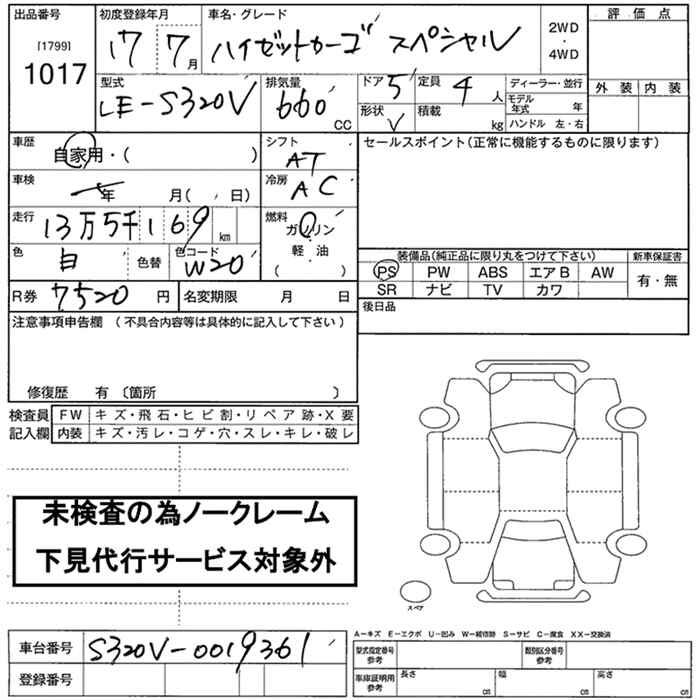 出品番号
[1799]
1017
初度登録年月
17 7月
車名・グレード
ハイゼットカーゴ スペシャル
2WD
・
4WD
評価点
外装 内装
型式
LE-S320V
排気量
660
CC
ドア 5
形状 V
定員 4人
積載 kg
ディーラー・並行
モデル年式 年
ハンドル 左・右
車歴
自家用・( )
シフト
AT
セールスポイント(正常に機能するものに限ります)
車検
年 月( 日)
冷房
AC
走行
13万5千169 km
燃料
ガソリン
・
軽油
( )
色
白
色替
色コード
W20
装備品(純正品に限り丸をつけて下さい)
新車保証書
PS PW ABS エアB AW
SR ナビ TV カワ
有・無
R券 7520円
名変期限 月 日
後日品
注意事項申告欄 (不具合内容等は具体的に記入して下さい)
修復歴 有 〔箇所 〕
検査員
記入欄
FW キズ・飛石・ヒビ割・リペア跡・X要
内装 キズ・汚レ・コゲ・穴・スレ・キレ・破レ
未検査の為ノークレーム
下見代行サービス対象外
スペア
車台番号 S320V-0019361
登録番号
A-キズ E-エクボ U-凹み W-補修跡 S-サビ C-腐食 XX-交換済
型式指定番号
参考
類別区分番号
参考
車庫証明用
参考
長さ cm
幅 cm
高さ cm